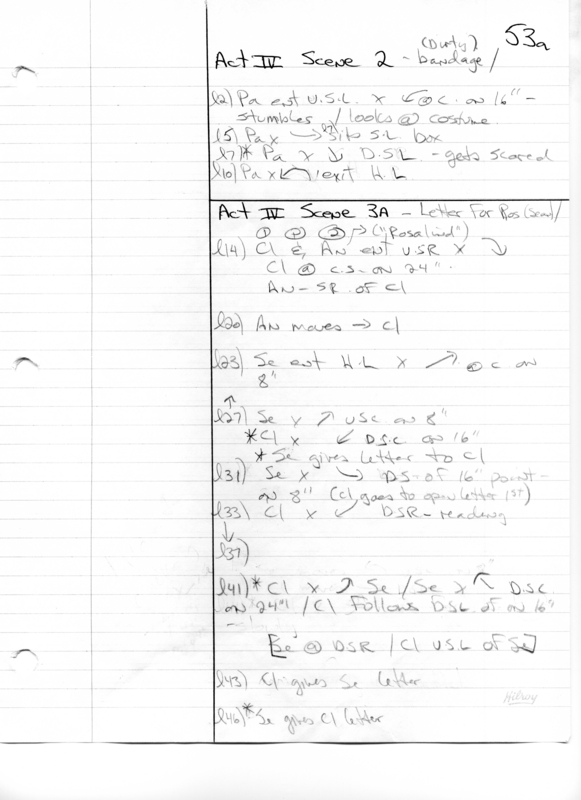 53a
(Dirty)
Act IV Scene 2 - bandage /
l2) Pa ent U.S.L. x ↙ @ C. on 16" -
stumbles / looks @ costume
l5) Pa x → sits S.L. box
l7)* Pa x ↓ D.S.L. - gets scared
l10) Pa x ↙ / exit H.L
Act IV Scene 3A - Letter For Ros (Sean) /
① ② ③ → ("Rosalind")
l14) Cl & An ent USR x ↘
Cl @ C.S. on 24"
An - SR of Cl
l20) An moves → Cl
l23) Se ent H.L x ↗ @ C on
8"
↑
l27) Se x ↗ USC on 8"
*Cl x ↙ D.S.C on 16"
*Se gives letter to Cl
l31) Se x ↘ DS of 16" point -
on 8" (Cl goes to open letter 1st)
l33) Cl x ↙ DSR - reading
↓
l37)
l41)* Cl x ↗ Se / Se x ↖ D.S.C
on 24" / Cl follows DSL of on 16"
[Se @ DSR / Cl U.S.L of Se]
l43) Cl gives Se letter
Hilroy
l46)* Se gives Cl letter